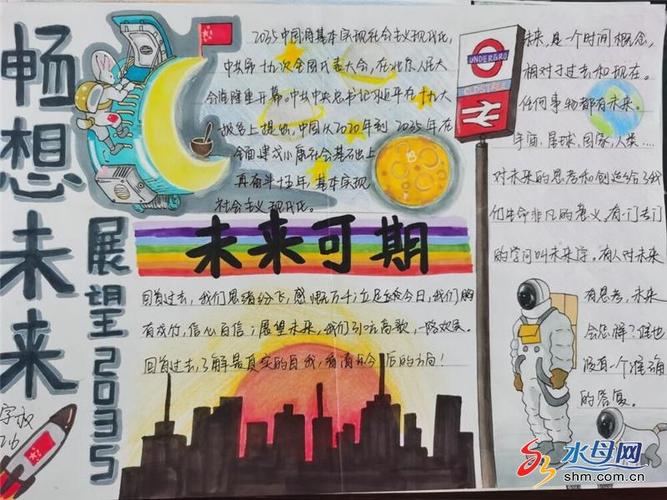 畅想未来
展望2035
2035中国将基本实现社会主义现代化,
中共第十九次全国代表大会,在北京人民大
会堂隆重开幕。中共中央总书记习近平在十九大
报告上提出,中国从2020年到2035年在
全面建成小康社会基础上
再奋斗十五年,基本实现
社会主义现代化。
未来可期
回首过去,我们思绪纷飞,感慨万千;立足于今日,我们胸
有成竹,信心百倍;展望未来,我们引吭高歌,一路欢笑。
回首过去,了解最真实的自我,看清今后的方向!
UNDERGRO
未来,是一个时间概念,
相对于过去和现在。
任何事物都有未来。
宇宙、星球、国家、人类……
对未来的思考和创造给予我
们生命非凡的意义,有一门专门
的学问叫未来学。有人对未来
有思考,未来
会怎样?谁也
没有一个准确
的答复。
水母网
shm.com.cn